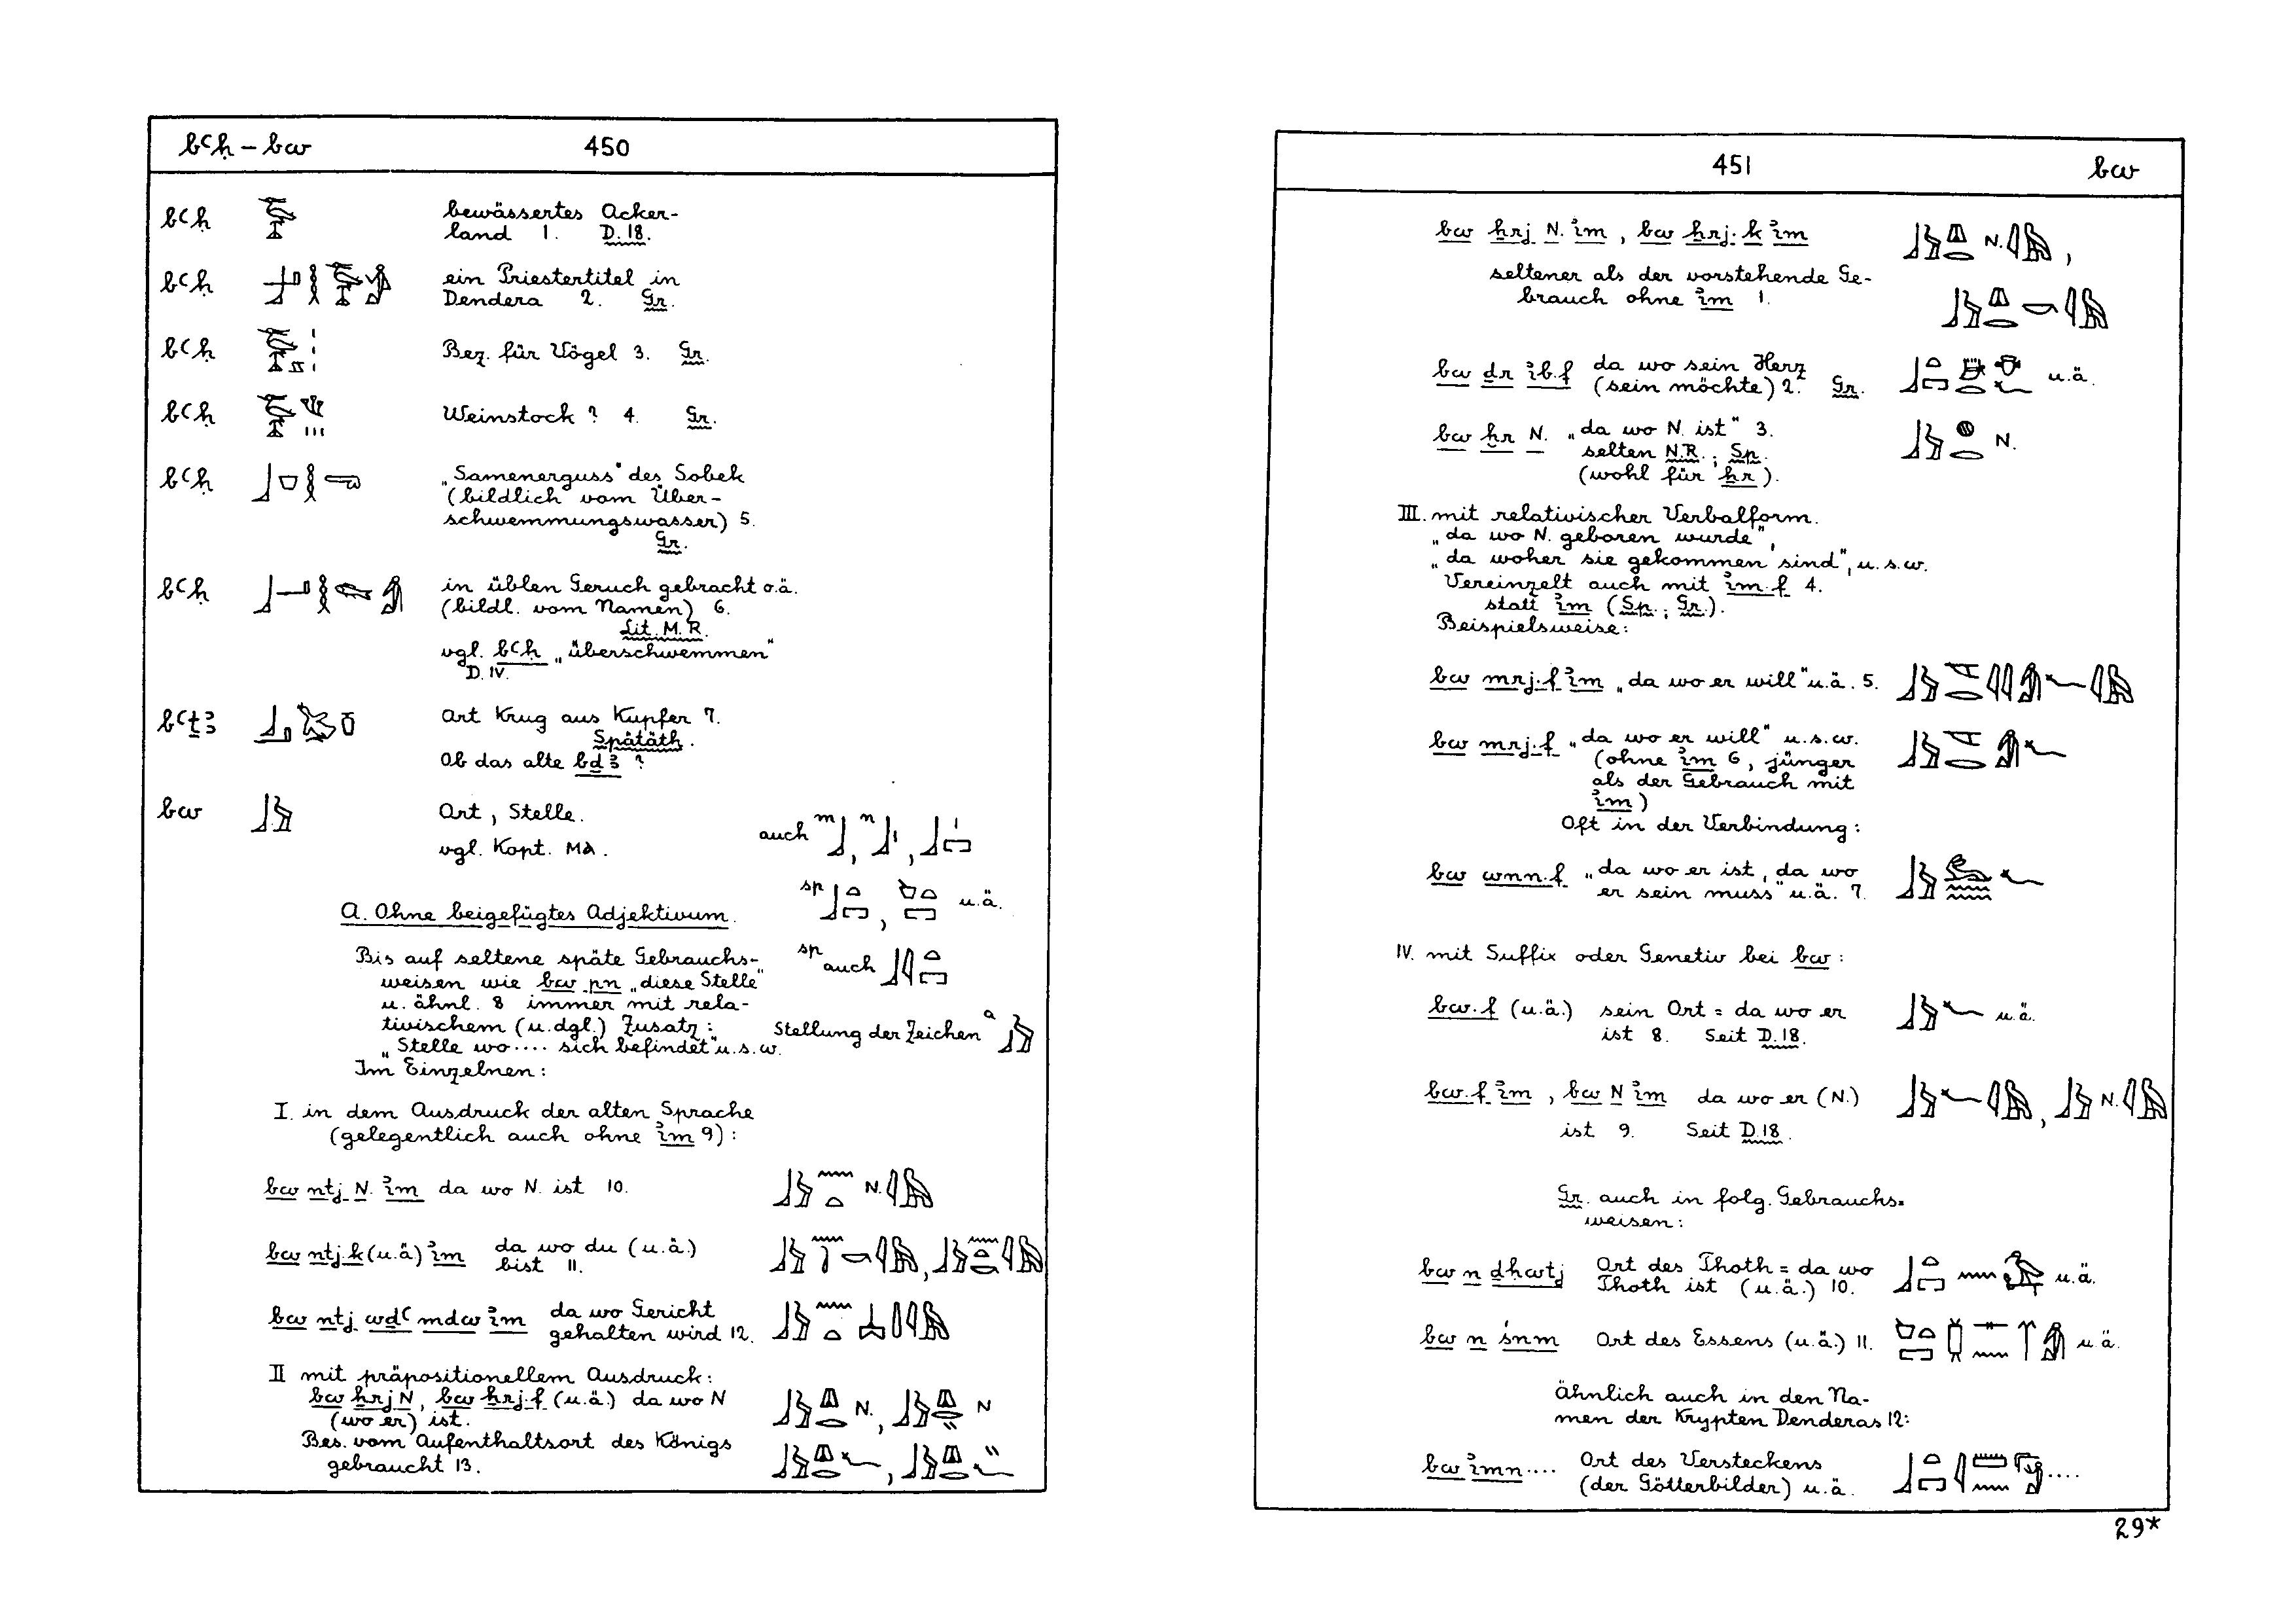 bꜥḥ – bw 450
bꜥḥ bewässertes Acker-
land 1. D. 18.
bꜥḥ ein Priestertitel in
Dendera 2. Gr.
bꜥḥ Bez. für Vögel 3. Gr.
bꜥḥ Weinstock ? 4. Gr.
bꜥḥ „Samenerguss" des Sobek
(bildlich vom Über-
schwemmungswasser) 5.
Gr.
bꜥḥ in üblen Geruch gebracht o.ä.
(bildl. vom Namen) 6.
Lit. M. R.
vgl. bꜥḥ „überschwemmen"
D. IV.
bꜥṯꜣ Art Krug aus Kupfer 7.
Spätäth.
Ob das alte bḏꜣ ?
bw Ort, Stelle.
auch m , n ,
vgl. Kopt. ⲙⲁ.
sp , u.ä.
A. Ohne beigefügtes Adjektivum.
Bis auf seltene späte Gebrauchs-
sp auch
weisen wie bw pn „diese Stelle"
u. ähnl. 8 immer mit rela-
tivischem (u. dgl.) Zusatz: Stellung der Zeichen a
„Stelle wo .... sich befindet" u.s.w.
Im Einzelnen:
I. in dem Ausdruck der alten Sprache
(gelegentlich auch ohne ꞽm 9):
bw ntj N. ꞽm da wo N. ist 10. N.
bw ntj.k (u.ä) ꞽm da wo du (u.ä.)
bist 11.
bw ntj wḏꜥ mdw ꞽm da wo Gericht
gehalten wird 12.
II mit präpositionellem Ausdruck:
bw ẖrj N, bw ẖrj.f (u.ä.) da wo N N., N
(wo er) ist.
Bes. vom Aufenthaltsort des Königs
gebraucht 13.
451 bw
bw ẖrj N. ꞽm, bw ẖrj.k ꞽm N. ,
seltener als der vorstehende Ge-
brauch ohne ꞽm 1.
bw ḏr ꞽb.f da wo sein Herz
(sein möchte) 2. Gr. u.ä.
bw ḫr N. „da wo N. ist" 3. N.
selten N.R.; Sp.
(wohl für ẖr).
III. mit relativischer Verbalform.
„da wo N. geboren wurde",
„da woher sie gekommen sind", u.s.w.
Vereinzelt auch mit ꞽm.f 4.
statt ꞽm (Sp.; Gr.).
Beispielsweise:
bw mrj.f ꞽm „da wo er will" u.ä. 5.
bw mrj.f „da wo er will" u.s.w.
(ohne ꞽm 6, jünger
als der Gebrauch mit
ꞽm)
Oft in der Verbindung:
bw wnn.f „da wo er ist, da wo
er sein muss" u.ä. 7.
IV. mit Suffix oder Genetiv bei bw:
bw.f (u.ä.) sein Ort = da wo er u.ä.
ist 8. Seit D. 18.
bw.f ꞽm, bw N ꞽm da wo er (N.) , N.
ist 9. Seit D. 18.
Gr. auch in folg. Gebrauchs-
weisen:
bw n ḏḥwtj Ort des Thoth = da wo u.ä.
Thoth ist (u.ä.) 10.
bw n śnm Ort des Essens (u.ä.) 11. u.ä.
ähnlich auch in den Na-
men der Krypten Denderas 12:
bw ꞽmn.... Ort des Versteckens ....
(der Götterbilder) u.ä.
29*